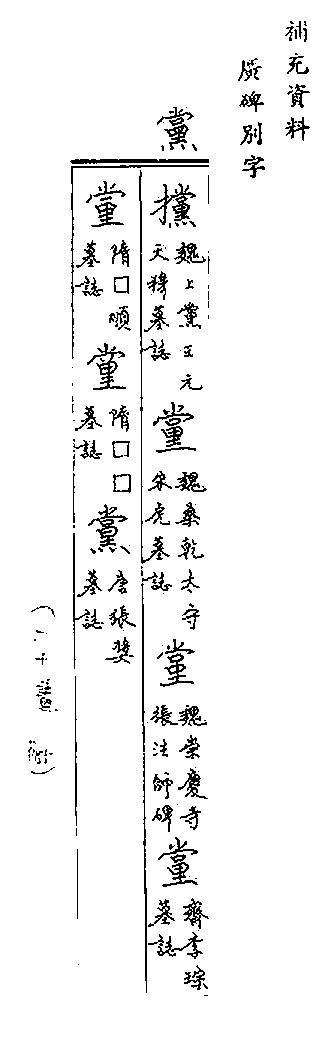 補充資料
廣碑別字
黨
攩
魏上黨王元
天穆墓誌
魏桑乾太守
宋虎墓誌
魏崇慶寺
張法師碑
齊李琮
墓誌
隋□順
墓誌
隋□□
墓誌
黨
唐張奖
墓誌